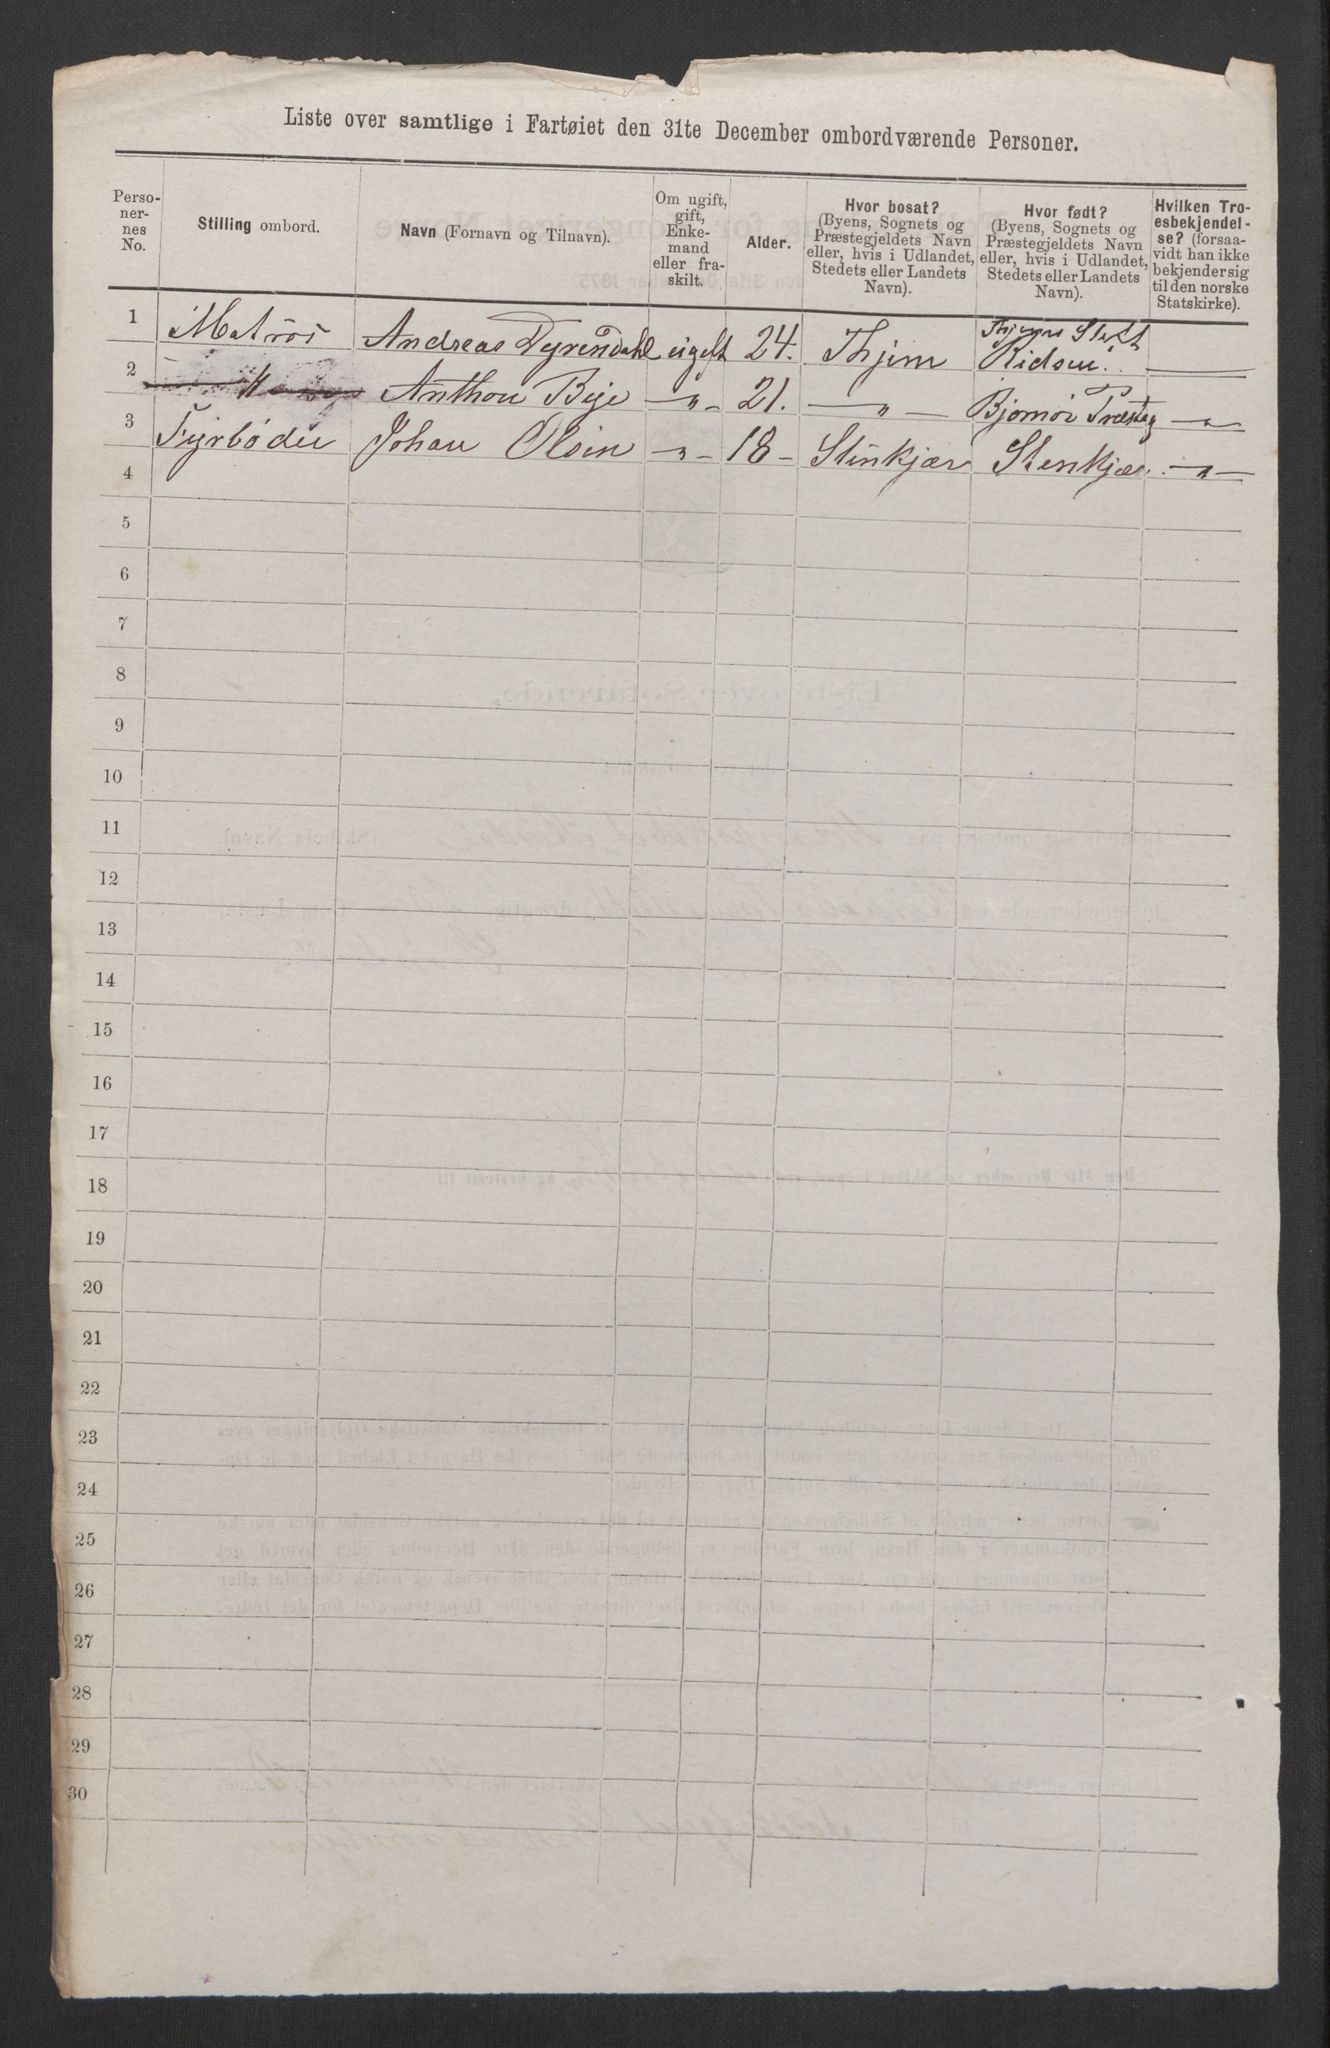 Liste over samtlige i Fartøiet den 31te December ombordværende Personer.
Perso-
ner-
nes
No.
Stilling ombord.
Navn (Fornavn og Tilnavn).
Om ugift,
gift,
Enke-
mand
eller fra-
skilt.
Alder.
Hvor bosat?
(Byens, Sognets og
Præstegjeldets Navn
eller, hvis i Udlandet,
Stedets eller Landets
Navn).
Hvor født?
(Byens, Sognets og
Præstegjeldets Navn
eller, hvis i Udlandet,
Stedets eller Landets
Navn).
Hvilken Tro-
esbekjendel-
se? (forsaa-
vidt han ikke
bekjender sig
til den norske
Statskirke).
1 Matros Andreas Dyrendahl ugift 24. Thjem
2 " Anthon Bye — " — 21. — " — Bjornør Præsteg — " —
3 Fyrbøder Johan Olsen — " — 18 — Stenkjær Stenkjær — " —
4
5
6
7
8
9
10
11
12
13
14
15
16
17
18
19
20
21
22
23
24
25
26
27
28
29
30